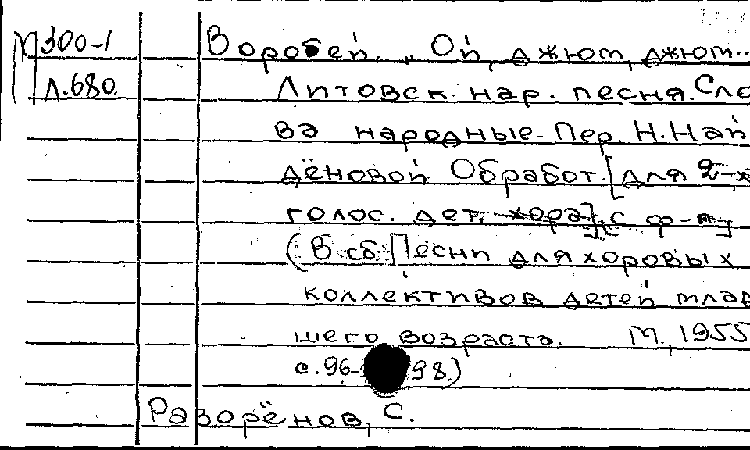 М300-1
Л.680.
Воробей. „Ой, джют, джют...
Литовск. нар. песня. Сло
ва народные. Пер. Н. Най
дёновой Обработ. [для 2-х
голос. дет. хора] с ф-п]
(В сб. Песни для хоровых
коллективов детей млад
шего возраста. М., 1955
с. 96- 98.)
Разорёнов, С.